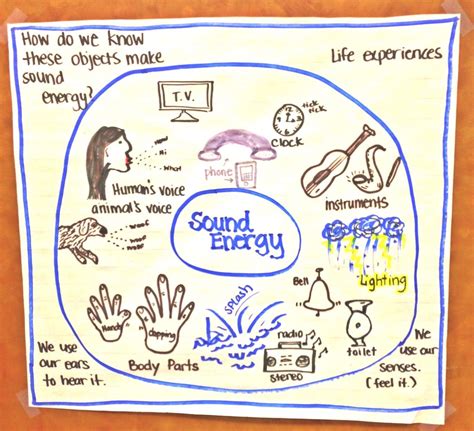 How do we know
these objects make
sound
energy?
Life experiences
T.V.
tick
tick
clock
phone
Wow!
Hi
What?
Human's voice
animal's voice
woof
woof
woof
instruments
Sound
Energy
Lighting
Hands
clapping
Body Parts
SPLASH
Bell
radio
stereo
toilet
We use
our ears
to hear it.
We
use our
senses.
(feel it.)